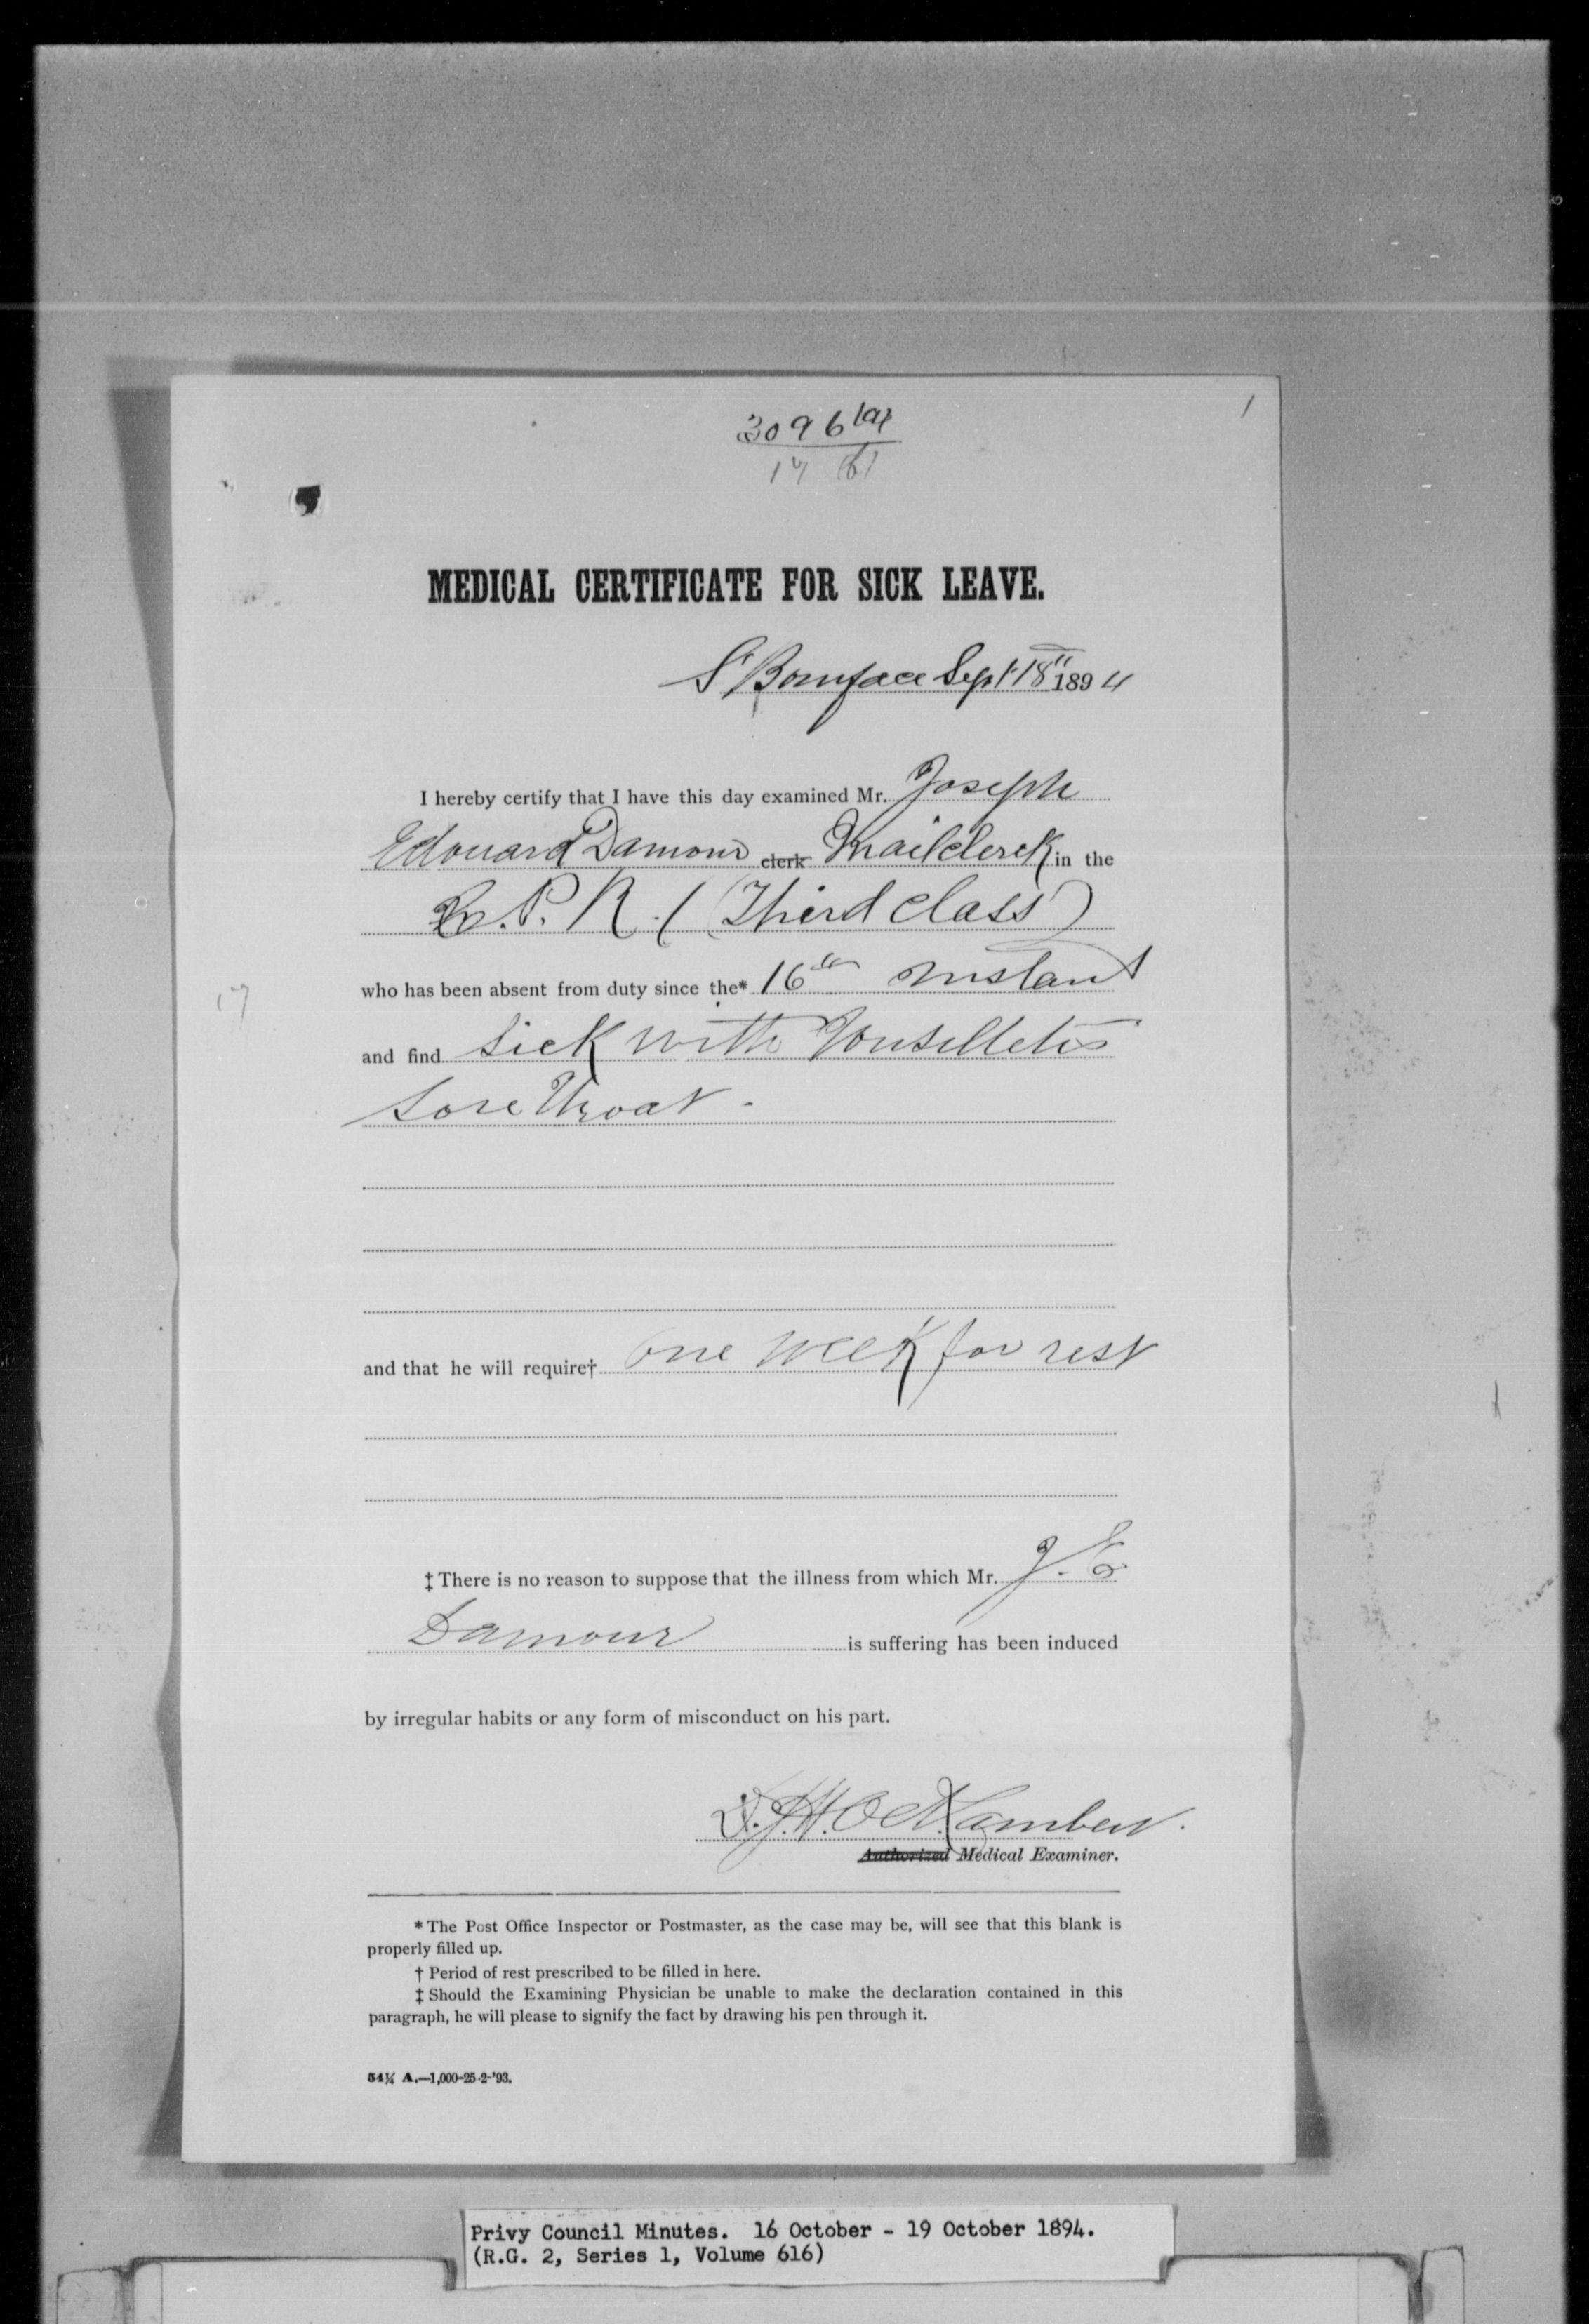 1
3096 (a)
17
MEDICAL CERTIFICATE FOR SICK LEAVE.
St Boniface Sept 18" 1894
I hereby certify that I have this day examined Mr. Joseph
Edouard Damour clerk Mail clerk in the
C. P. R. (Third class)
who has been absent from duty since the* 16th instant
17
and find sick with Tonselletis
Sore Throat.
and that he will require† one week for rest
‡ There is no reason to suppose that the illness from which Mr. J. E
Damour is suffering has been induced
by irregular habits or any form of misconduct on his part.
Lambert.
Authorized Medical Examiner.
* The Post Office Inspector or Postmaster, as the case may be, will see that this blank is
properly filled up.
† Period of rest prescribed to be filled in here.
‡ Should the Examining Physician be unable to make the declaration contained in this
paragraph, he will please to signify the fact by drawing his pen through it.
54¼ A.—1,000-25-2-'93.
Privy Council Minutes. 16 October - 19 October 1894.
(R.G. 2, Series 1, Volume 616)